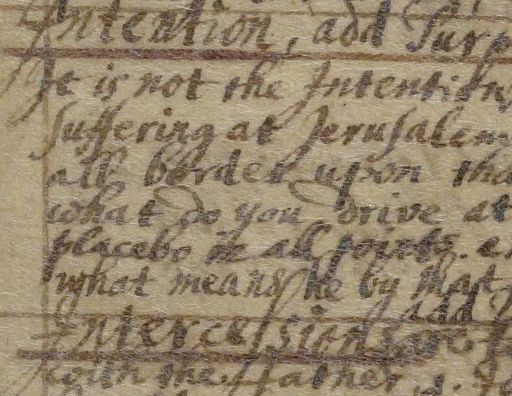 Intention, add Purp
It is not the Intention
suffering at Jerusalem
all border upon tha
what do you drive at
placebo in all points.
what means he by that
add
Intercession
with the father, q.